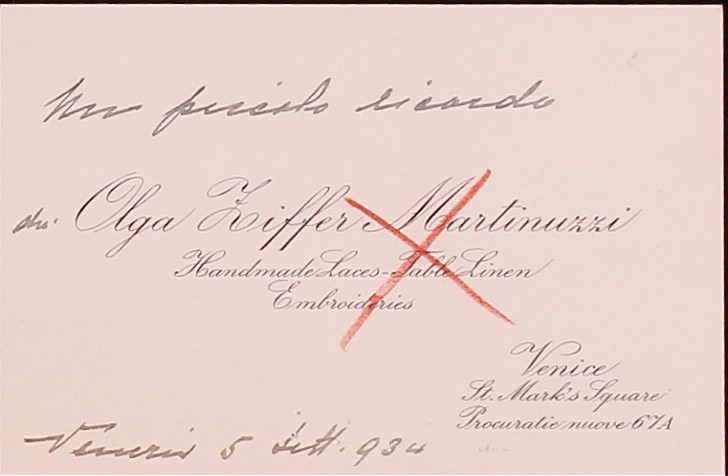 Un piccolo ricordo
da. Olga Ziffer Martinuzzi
Handmade Laces-Table Linen
Embroideries
Venice
St. Mark's Square
Procuratie nuove 67A
Venezia 5 Sett. 934